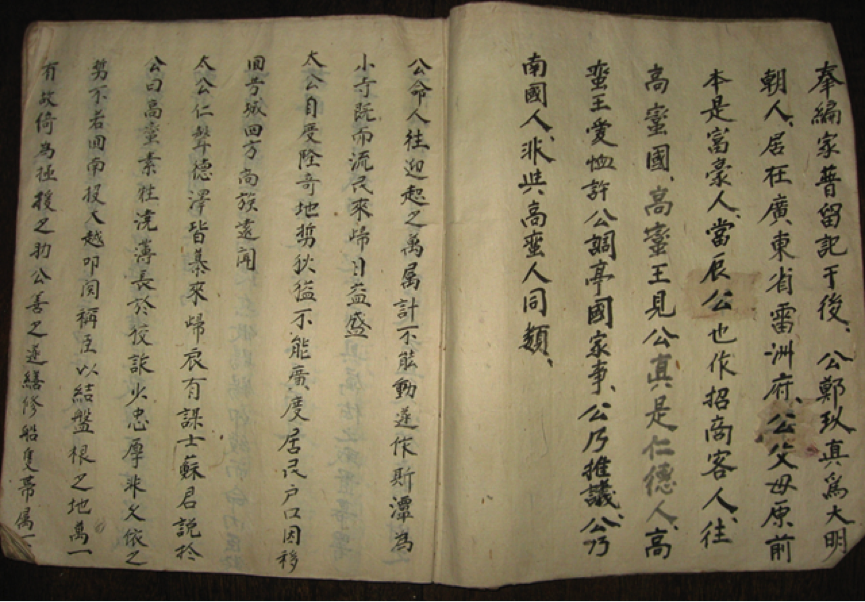 奉編家普留記于後、公鄭玖真爲大明
朝人、居在廣東省雷洲府、公父母原前
本是富豪人、當辰公也作招商客人、往
高蠻國、高蠻王見公真是仁德人、高
蠻王愛恤許公調亭國家事、公乃推議、公乃
南國人、非與高蠻人同類、
公命人往迎起之萬属計不能動遂作斯潭爲
小寺既而流民來歸日益盛
太公自度隆奇地勢狹不能廣度居民戶口因移
回芳城四方商族遠聞
太公仁聲德澤皆慕來歸辰有謀士蘇君說於
公曰高蠻素性澆薄長於狡詐少忠厚非久依之
勢不若回南投大越叩関稱臣以結盤根之地萬一
有故倚爲拯援之助公善之遂繕修船隻帶属一